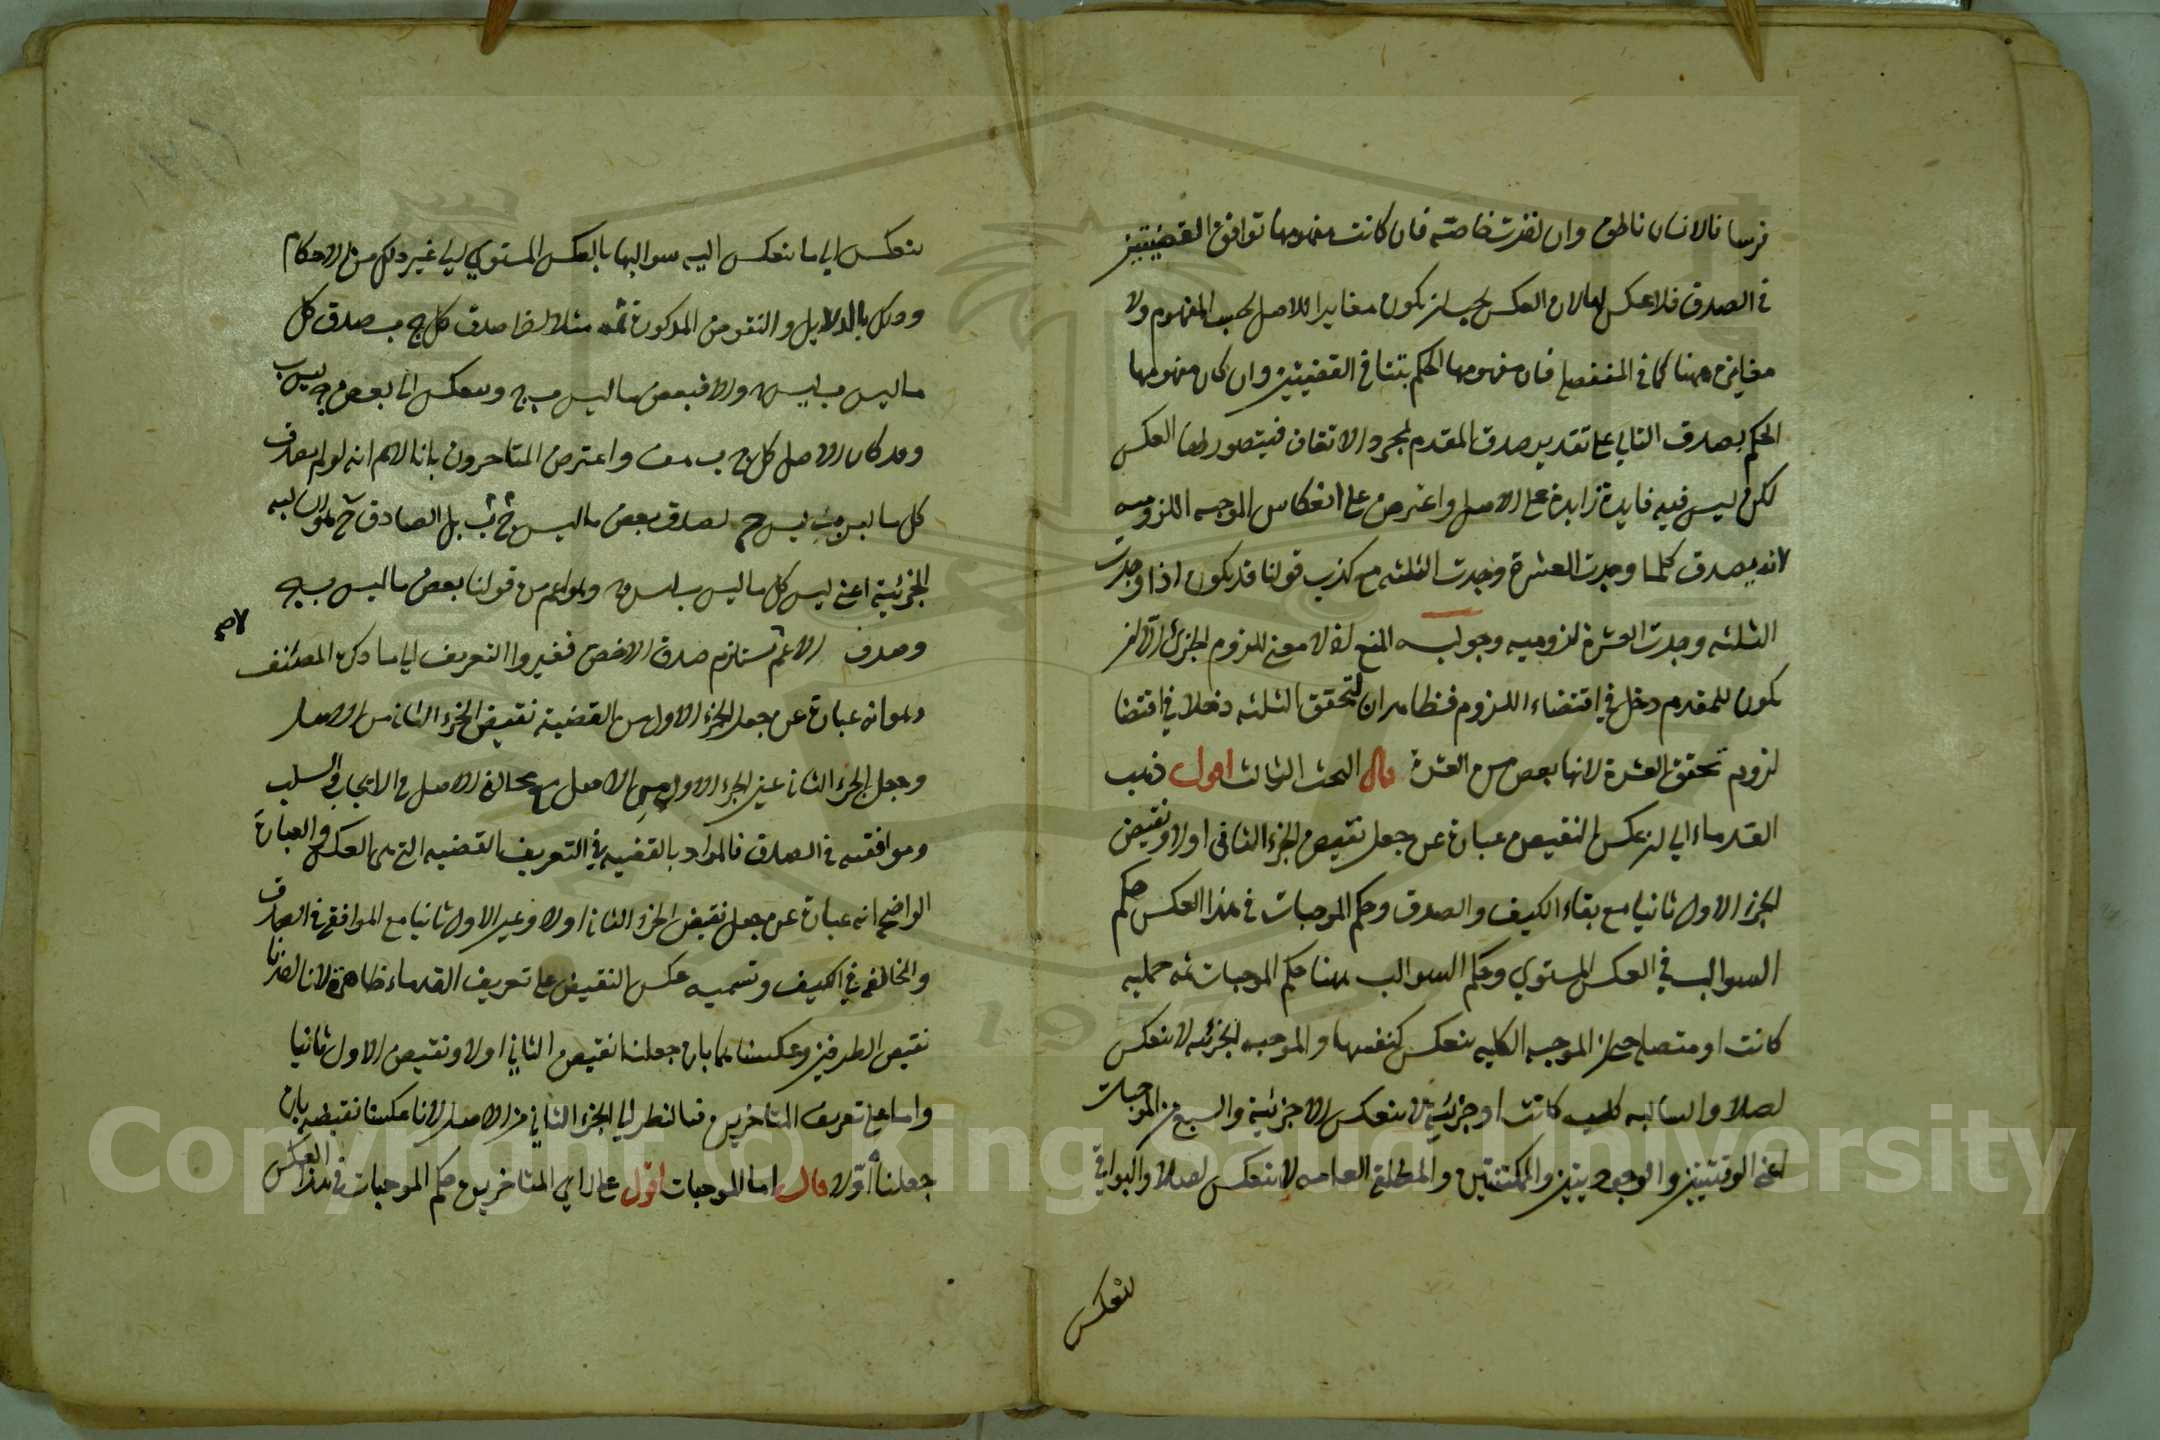 فرسا فالانسان ناطق وان لفرت خاصة فان كانت مفهومها توافق القضيتين
في الصدق فلا عكس لها لان العكس يجب ان يكون مغايرا للاصل بحسب المفهوم ولا
مغايرة ههنا كما في المنفصلة فان مفهومها الحكم بتنافي القضيتين وان كان مفهومها
الحكم بصدق التالي على تقدير صدق المقدم لمجرد الاتفاق فيتصور لها العكس
لكن ليس فيه فايدة زايدة على الاصل واعترض على انعكاس الموجبه اللزوميه
لانه يصدق كلما وجدت العشرة وجدت الثلثه مع كذب قولنا قد يكون اذا وجدت
الثلثه وجدت العشرة لزوميه وجوابه المنع اذ لا معنى للزوم الجزئي الا ان
يكون للمقدم دخل في اقتضاء اللزوم فظاهر ان لتحقق الثلثه دخلا في اقتضا
لزوم تحقق العشرة لانها بعض من العشرة قال البحث الثالث اقول ذهب
القدماء الى ان عكس النقيض عبارة عن جعل نقيض الجزء الثاني اولا ونقيض
الجزء الاول ثانيا مع بقاء الكيف والصدق وحكم الموجبات في هذا العكس حكم
السوالب في العكس المستوي وحكم السوالب هنا حكم الموجبات ثمه حمليه
كانت او متصلة حتى ان الموجبه الكليه تنعكس كنفسها والموجبه الجزئيه لا تنعكس
اصلا والسالبه كليه كانت او جزئية لا تنعكس الا جزئية والسبع من الموجبات
اعني الوقتيتين والوجوديتين والممكنتين والمطلقة العامه لا تنعكس اصلا والبواقي
تنعكس
تنعكس الى ما تنعكس اليه سوالبها بالعكس المستوي الى غير ذلك من الاحكام
وذلك بالدلايل والنقوض المذكورة ثمه مثلا اذا صدق كل ج ب صدق كل
ما ليس ب ليس ج والا فبعض ما ليس ب ج وينعكس الى بعض ج ليس ب
وقد كان الاصل كل ج ب هف واعترض المتاخرون بانا لا نسلم انه لو لم يصدق
كل ما ليس ب ليس ج لصدق بعض ما ليس ب ج بل الصادق ح هو السالبه
الجزئية اعني ليس كل ما ليس ب ليس ج وهو اعم من قولنا بعض ما ليس ب ج
وصدق الاعم لا يستلزم صدق الاخص فغيروا التعريف الى ما ذكره المصنف
وهو انه عبارة عن جعل الجزء الاول من القضية نقيض الجزء الثاني من الاصل
وجعل الجزء الثاني عين الجزء الاول من الاصل مع مخالفة الاصل في الايجاب والسلب
وموافقته في الصدق فالمراد بالقضيه في التعريف القضيه التي هي العكس والعبارة
الواضحة انه عبارة عن جعل نقيض الجزء الثاني اولا وعين الاول ثانيا مع الموافقة في الصدق
والمخالفة في الكيف وتسميه عكس النقيض على تعريف القدماء ظاهرة لانا اخذنا
نقيض الطرفين وعكسناهما بان جعلنا نقيض الثاني اولا ونقيض الاول ثانيا
واما على تعريف المتاخرين فبالنظر الى الجزء الثاني من الاصل لانا عكسنا نقيضه بان
جعلناه اولا قال اما الموجبات اقول على راي المتاخرين حكم الموجبات في هذا العكس